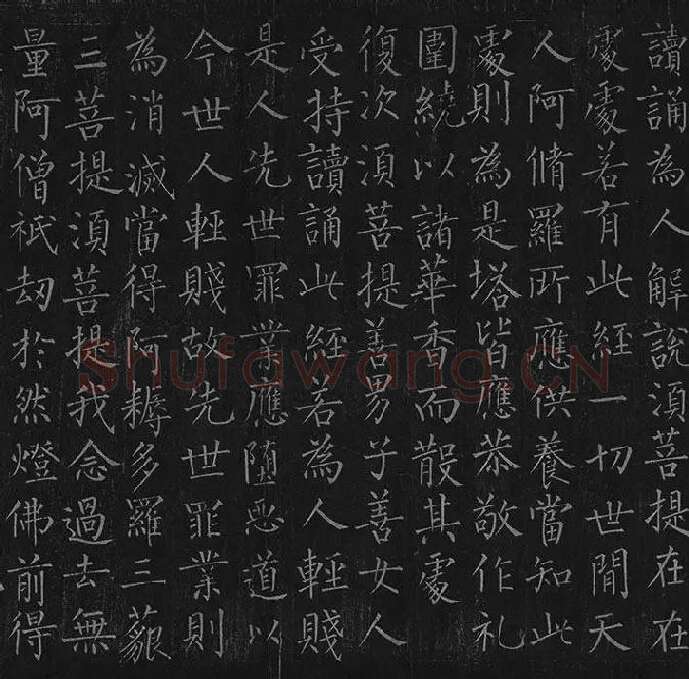 讀誦為人解說湏菩提在在
處處若有此經一切世間天
人阿脩羅所應供養當知此
處則為是塔皆應恭敬作礼
圍繞以諸華香而散其處
復次湏菩提善男子善女人
受持讀誦此經若為人輕賤
是人先世罪業應堕惡道以
今世人輕賤故先世罪業則
為消滅當得阿耨多羅三藐
三菩提湏菩提我念過去無
量阿僧祇劫於然燈佛前得
Shufawang.CN